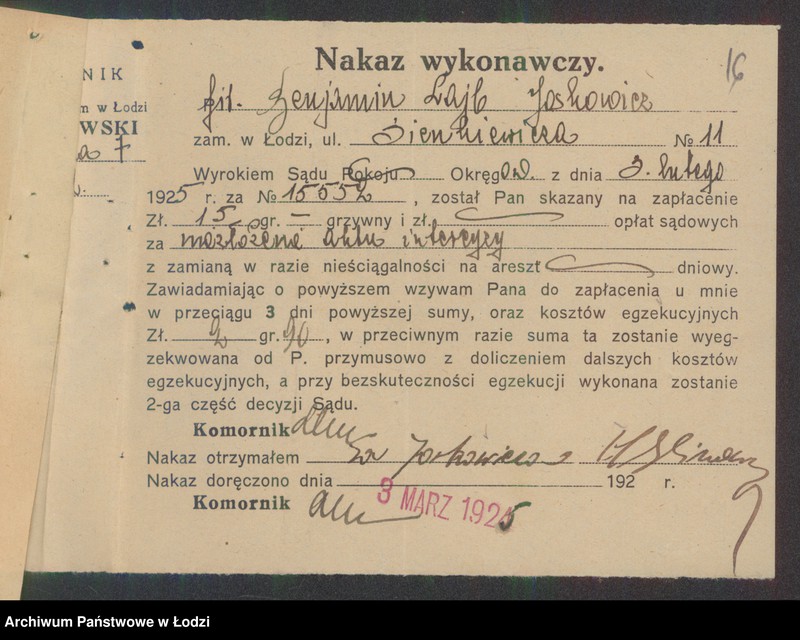 NIK
m w Łodzi
WSKI
a 7
16
Nakaz wykonawczy.
Benjamin Lajb Joskowicz
zam. w Łodzi, ul. Sienkiewicza № 11
Wyrokiem Sądu Pokoju Okręgow. z dnia 3. lutego
1925 r. za № 15552, został Pan skazany na zapłacenie
Zł. 15 gr. — grzywny i zł. opłat sądowych
za niezłożenie aktu intercyzy
z zamianą w razie nieściągalności na areszt dniowy.
Zawiadamiając o powyższem wzywam Pana do zapłacenia u mnie
w przeciągu 3 dni powyższej sumy, oraz kosztów egzekucyjnych
Zł. 2 gr. 90, w przeciwnym razie suma ta zostanie wyeg-
zekwowana od P. przymusowo z doliczeniem dalszych kosztów
egzekucyjnych, a przy bezskuteczności egzekucji wykonana zostanie
2-ga część decyzji Sądu.
Komornik
Nakaz otrzymałem
Nakaz doręczono dnia 192 r.
3 MARZ 1925
Komornik
Archiwum Państwowe w Łodzi